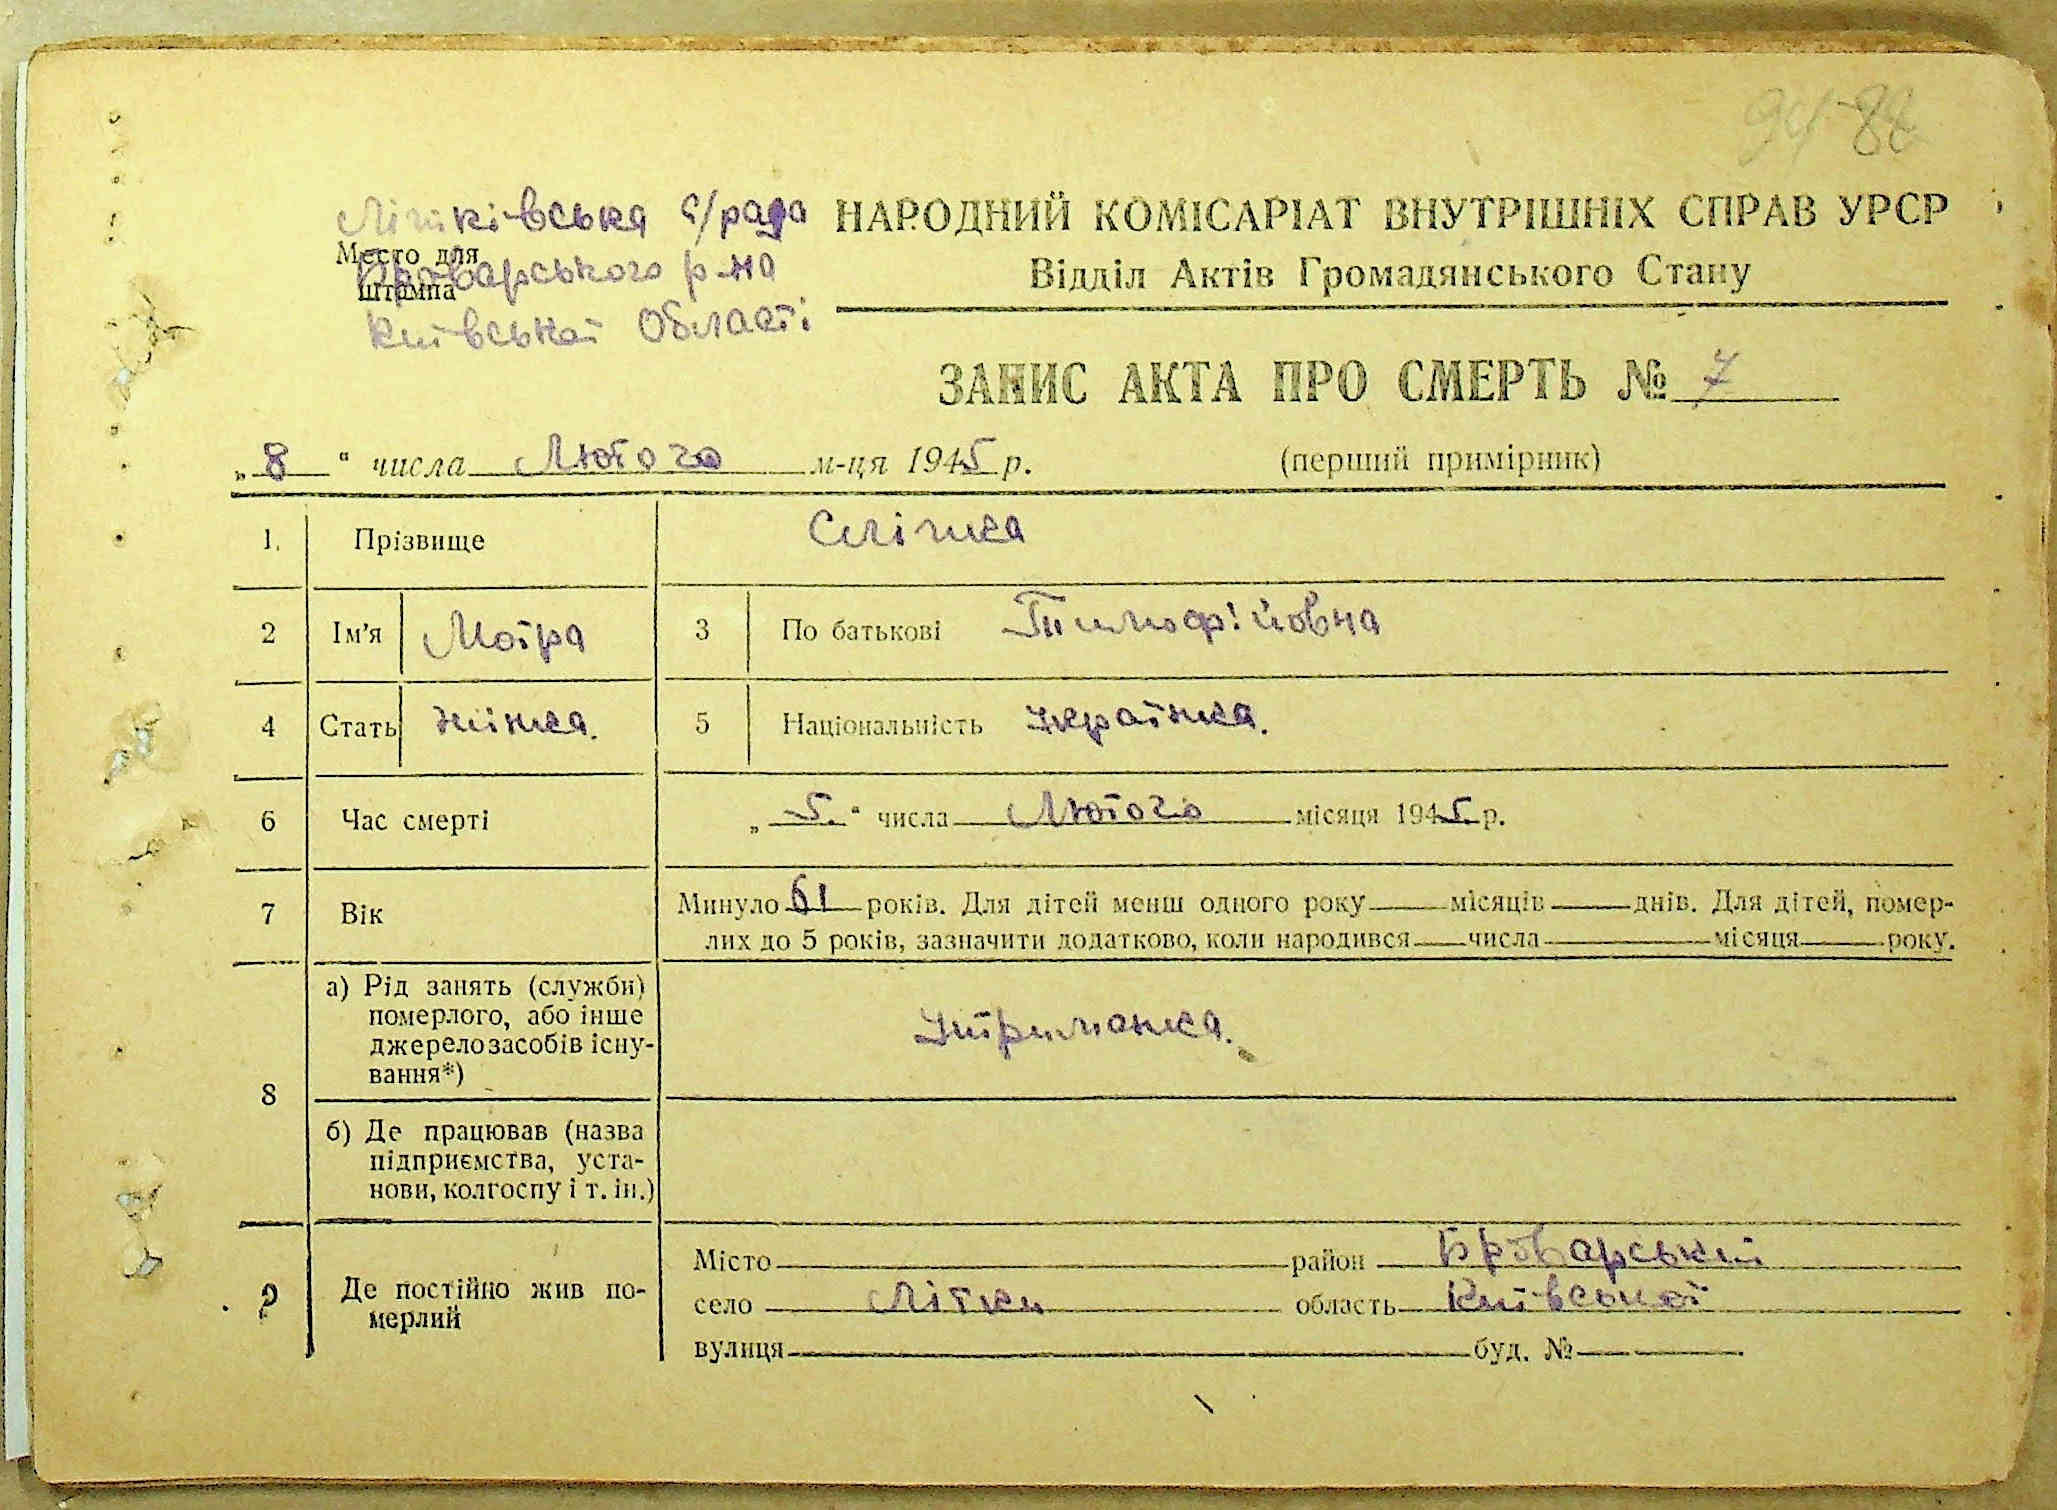 94 88
Літківська с/рада
НАРОДНИЙ КОМІСАРІАТ ВНУТРІШНІХ СПРАВ УРСР
Место для
Броварського р-на
штампа
Відділ Актів Громадянського Стану
Київської Області
ЗАПИС АКТА ПРО СМЕРТЬ № 7
„ 8 “ числа Лютого м-ця 1945 р. (перший примірник)
1. Прізвище Сліпка
2 Ім'я Мотра 3 По батькові Тимофійовна
4 Стать жінка. 5 Національність українка.
6 Час смерті „ 5. “ числа Лютого місяця 1945. р.
7 Вік Минуло 61 років. Для дітей менш одного року місяців днів. Для дітей, помер-
лих до 5 років, зазначити додатково, коли народився числа місяця року.
8 а) Рід занять (служби)
померлого, або інше
джерело засобів існу-
вання*)
Утриманка.
б) Де працював (назва
підприємства, уста-
нови, колгоспу і т. ін.)
9 Де постійно жив по-
мерлий
Місто район Броварський
село Літки область Київської
вулиця буд. №